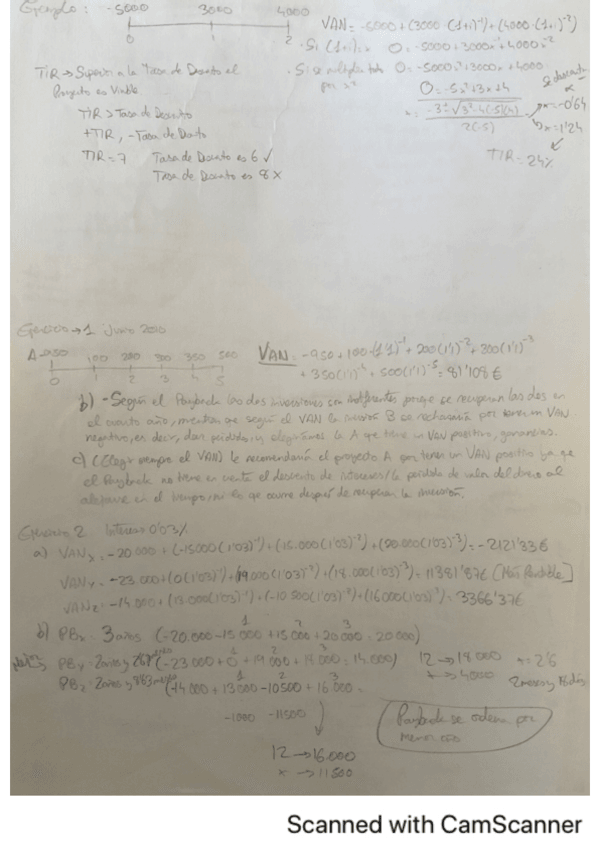 Ejemplo: -5000 3000 4000
0 1 2
VAN = -5000 + (3000 · (1+i)⁻¹) + (4000 · (1+i)⁻²)
· Si (1+i) = x 0 = -5000 + 3000x⁻¹ + 4000x⁻²
· Si se multiplica todo por x² 0 = -5000x² + 3000x + 4000
0 = -5x² + 3x + 4
x = -3 ± √3² - 4(-5)(4) / 2(-5)
x = -0'64 Se descarta
x = 1'24
TIR = 24%
TIR → Superior a la Tasa de Descuento el
Proyecto es Viable
TIR > Tasa de Descuento
+TIR, - Tasa de Dcuto
TIR = 7 Tasa de Dcuento es 6 ✓
Tasa de Dcuento es 8 X
Ejercicio → 1 Junio 2010
A -950 100 200 300 350 500
0 1 2 3 4 5
VAN = -950 + 100·(1'1)⁻¹ + 200(1'1)⁻² + 300(1'1)⁻³
+ 350(1'1)⁻⁴ + 500(1'1)⁻⁵ = 81'108 €
b) - Según el Payback las dos inversiones son indiferentes porque se recuperan las dos en
el cuarto año, mientras que según el VAN la inversión B se rechazaría por tener un VAN
negativo, es decir, dan pérdidas, y elegiríamos la A que tiene un VAN positivo, ganancias.
c) (Elegir siempre el VAN) Le recomendaría el proyecto A por tener un VAN positivo ya que
el Payback no tiene en cuenta el descuento de intereses/la pérdida de valor del dinero al
en el tiempo, ni lo que ocurre después de recuperar la inversión.
Ejercicio 2 Interés 0'03%
a) VANx = -20000 + (-15000(1'03)⁻¹) + (15.000(1'03)⁻²) + (20.000(1'03)⁻³) = -2121'33€
VANy = -23.000 + (0(1'03)⁻¹) + (19000(1'03)⁻²) + (18.000(1'03)⁻³) = 11381'87€ [Más Rentable]
VANz = -14000 + (13.000(1'03)⁻¹) + (-10500(1'03)⁻²) + (16000(1'03)⁻³) = 3366'37€
1 2 3
b) PBx = 3 años (-20.000 - 15000 + 15000 + 20000 = 20000)
PBy = 2 años y (-23000 + 0 + 19000 + 18000 = 14.000) 12 → 18000 x = 2'6
PBz = 2 años y (-14000 + 13000 - 10500 + 16000 = x → 4000 2 meses y
-1000 -11500
12 → 16.000
x → 11500
Payback se ordena por
menor
Scanned with CamScanner